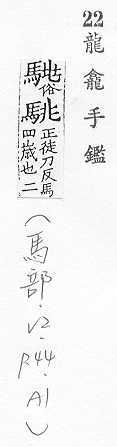 22 龍龕手鑑
俗駣正徒刀反馬四歲也二
(馬部.V2.P44.A1)